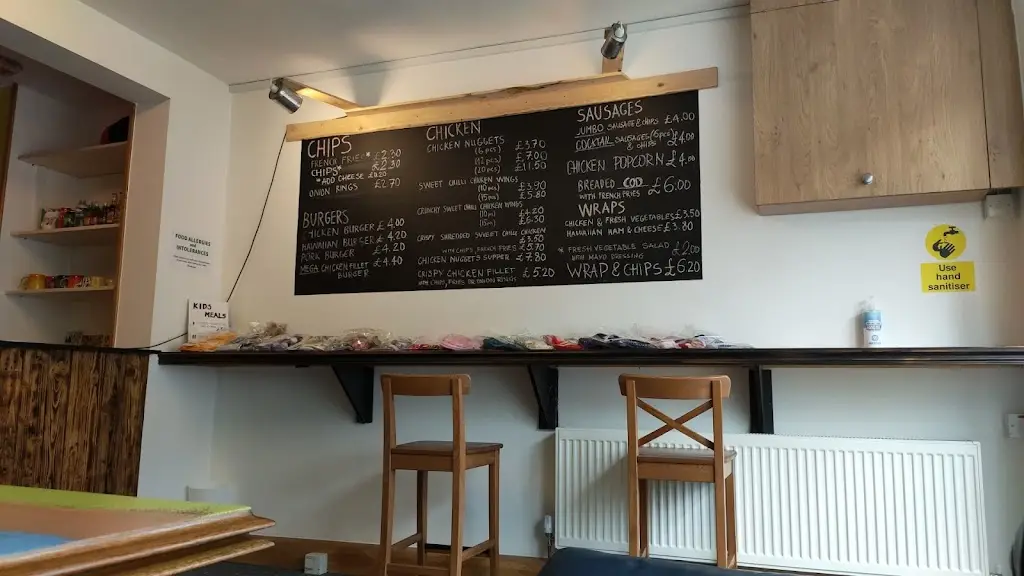 CHIPS
FRENCH FRIES* £2.30
CHIPS* £2.30
*ADD CHEESE £0.20
ONION RINGS £2.70
BURGERS
CHICKEN BURGER £4.00
HAWAIIAN BURGER £4.20
PORK BURGER £4.20
MEGA CHICKEN FILLET £4.40
BURGER
CHICKEN
CHICKEN NUGGETS
(6 pcs) £3.70
(12 pcs) £7.00
(20 pcs) £11.50
SWEET CHILLI CHICKEN WINGS
(10 pcs) £3.90
(15 pcs) £5.80
CRUNCHY SWEET CHILLI CHICKEN WINGS
(10 pcs) £4.20
(15 pcs) £6.30
CRISPY SHREDDED SWEET CHILLI CHICKEN
£3.50
WITH CHIPS £5.70
CHICKEN NUGGETS SUPPER £7.80
CRISPY CHICKEN FILLET £5.20
WITH CHIPS, FRIES OR ONION RINGS
SAUSAGES
JUMBO SAUSAGE & CHIPS £4.00
COCKTAIL SAUSAGES (6pcs) £4.00
& CHIPS
CHICKEN POPCORN £4.00
BREADED COD £6.00
WITH FRENCH FRIES
WRAPS
CHICKEN & FRESH VEGETABLES £3.50
HAWAIIAN HAM & CHEESE £3.80
* FRESH VEGETABLE SALAD £2.00
WITH MAYO DRESSING
WRAP & CHIPS £6.20
FOOD ALLERGIES
and
INTOLERANCES
KIDS
MEALS
Use
hand
sanitiser